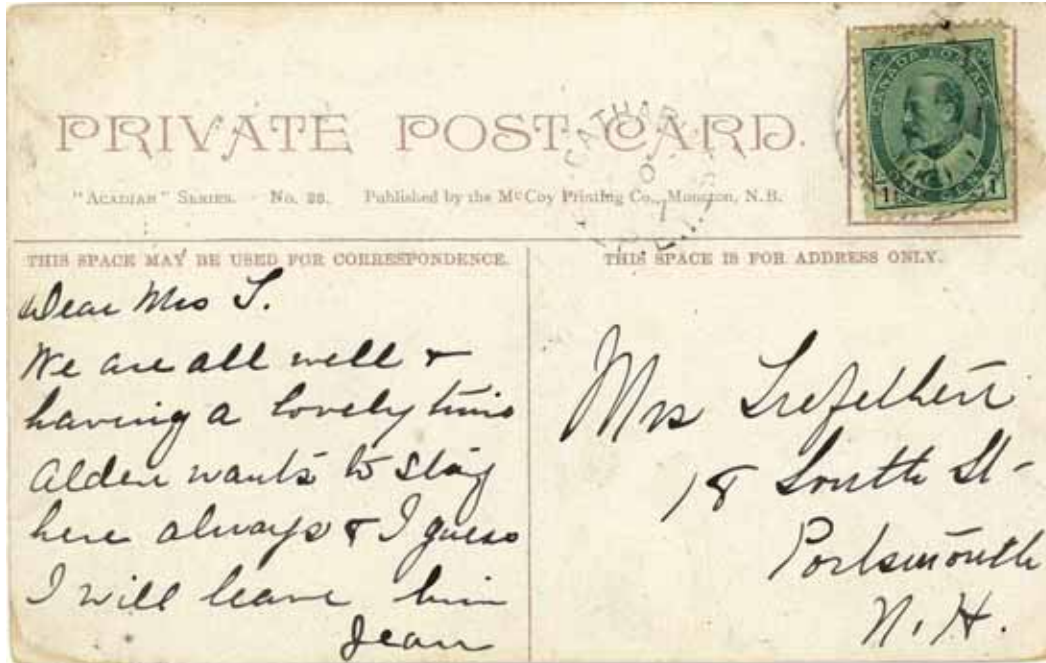 PRIVATE POST CARD.
"ACADIAN" SERIES. No. 26. Published by the McCoy Printing Co., Moncton, N.B.
CANADA POSTAGE
1 ONE CENT 1
THIS SPACE MAY BE USED FOR CORRESPONDENCE.
Dear Mrs T.
We are all well &
having a lovely time
Alden wants to stay
here always & I guess
I will leave him
Jean
THIS SPACE IS FOR ADDRESS ONLY.
Mrs Trefethen
18 South St-
Portsmouth
N.H.